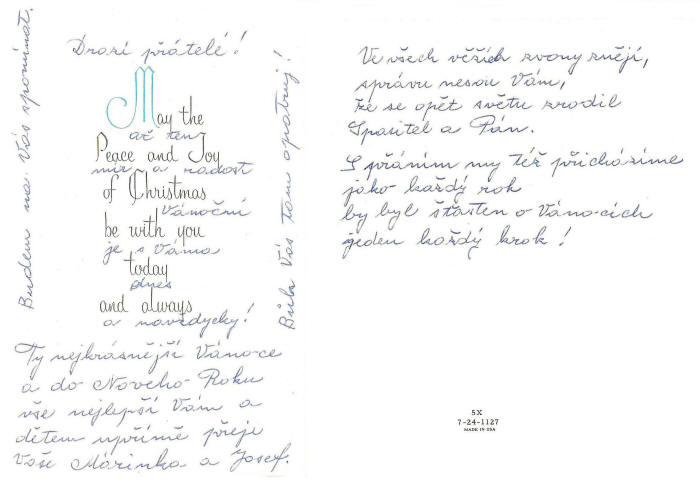 Drazí přátelé!
May the
ať ten
Peace and Joy
mír a radost
of Christmas
Vánoční
be with you
je s Váma
today
dnes
and always
a navždycky!
Ty nejkrásnější Vánoce
a do Nového Roku
vše nejlepší Vám a
dětem upřímě přeje
Vaše Márinka a Josef.
Budem na Vás vpomínat.
Bůh Vás tam opatruj!
Ve všech věžích zvony znějí,
správu nesou Vám,
že se opět světu zrodil
Spasitel a Pán.
S přáním my též přicházíme
jako každý rok
by byl šťasten o Vánocích
jeden každý krok!
5X
7-24-1127
MADE IN USA